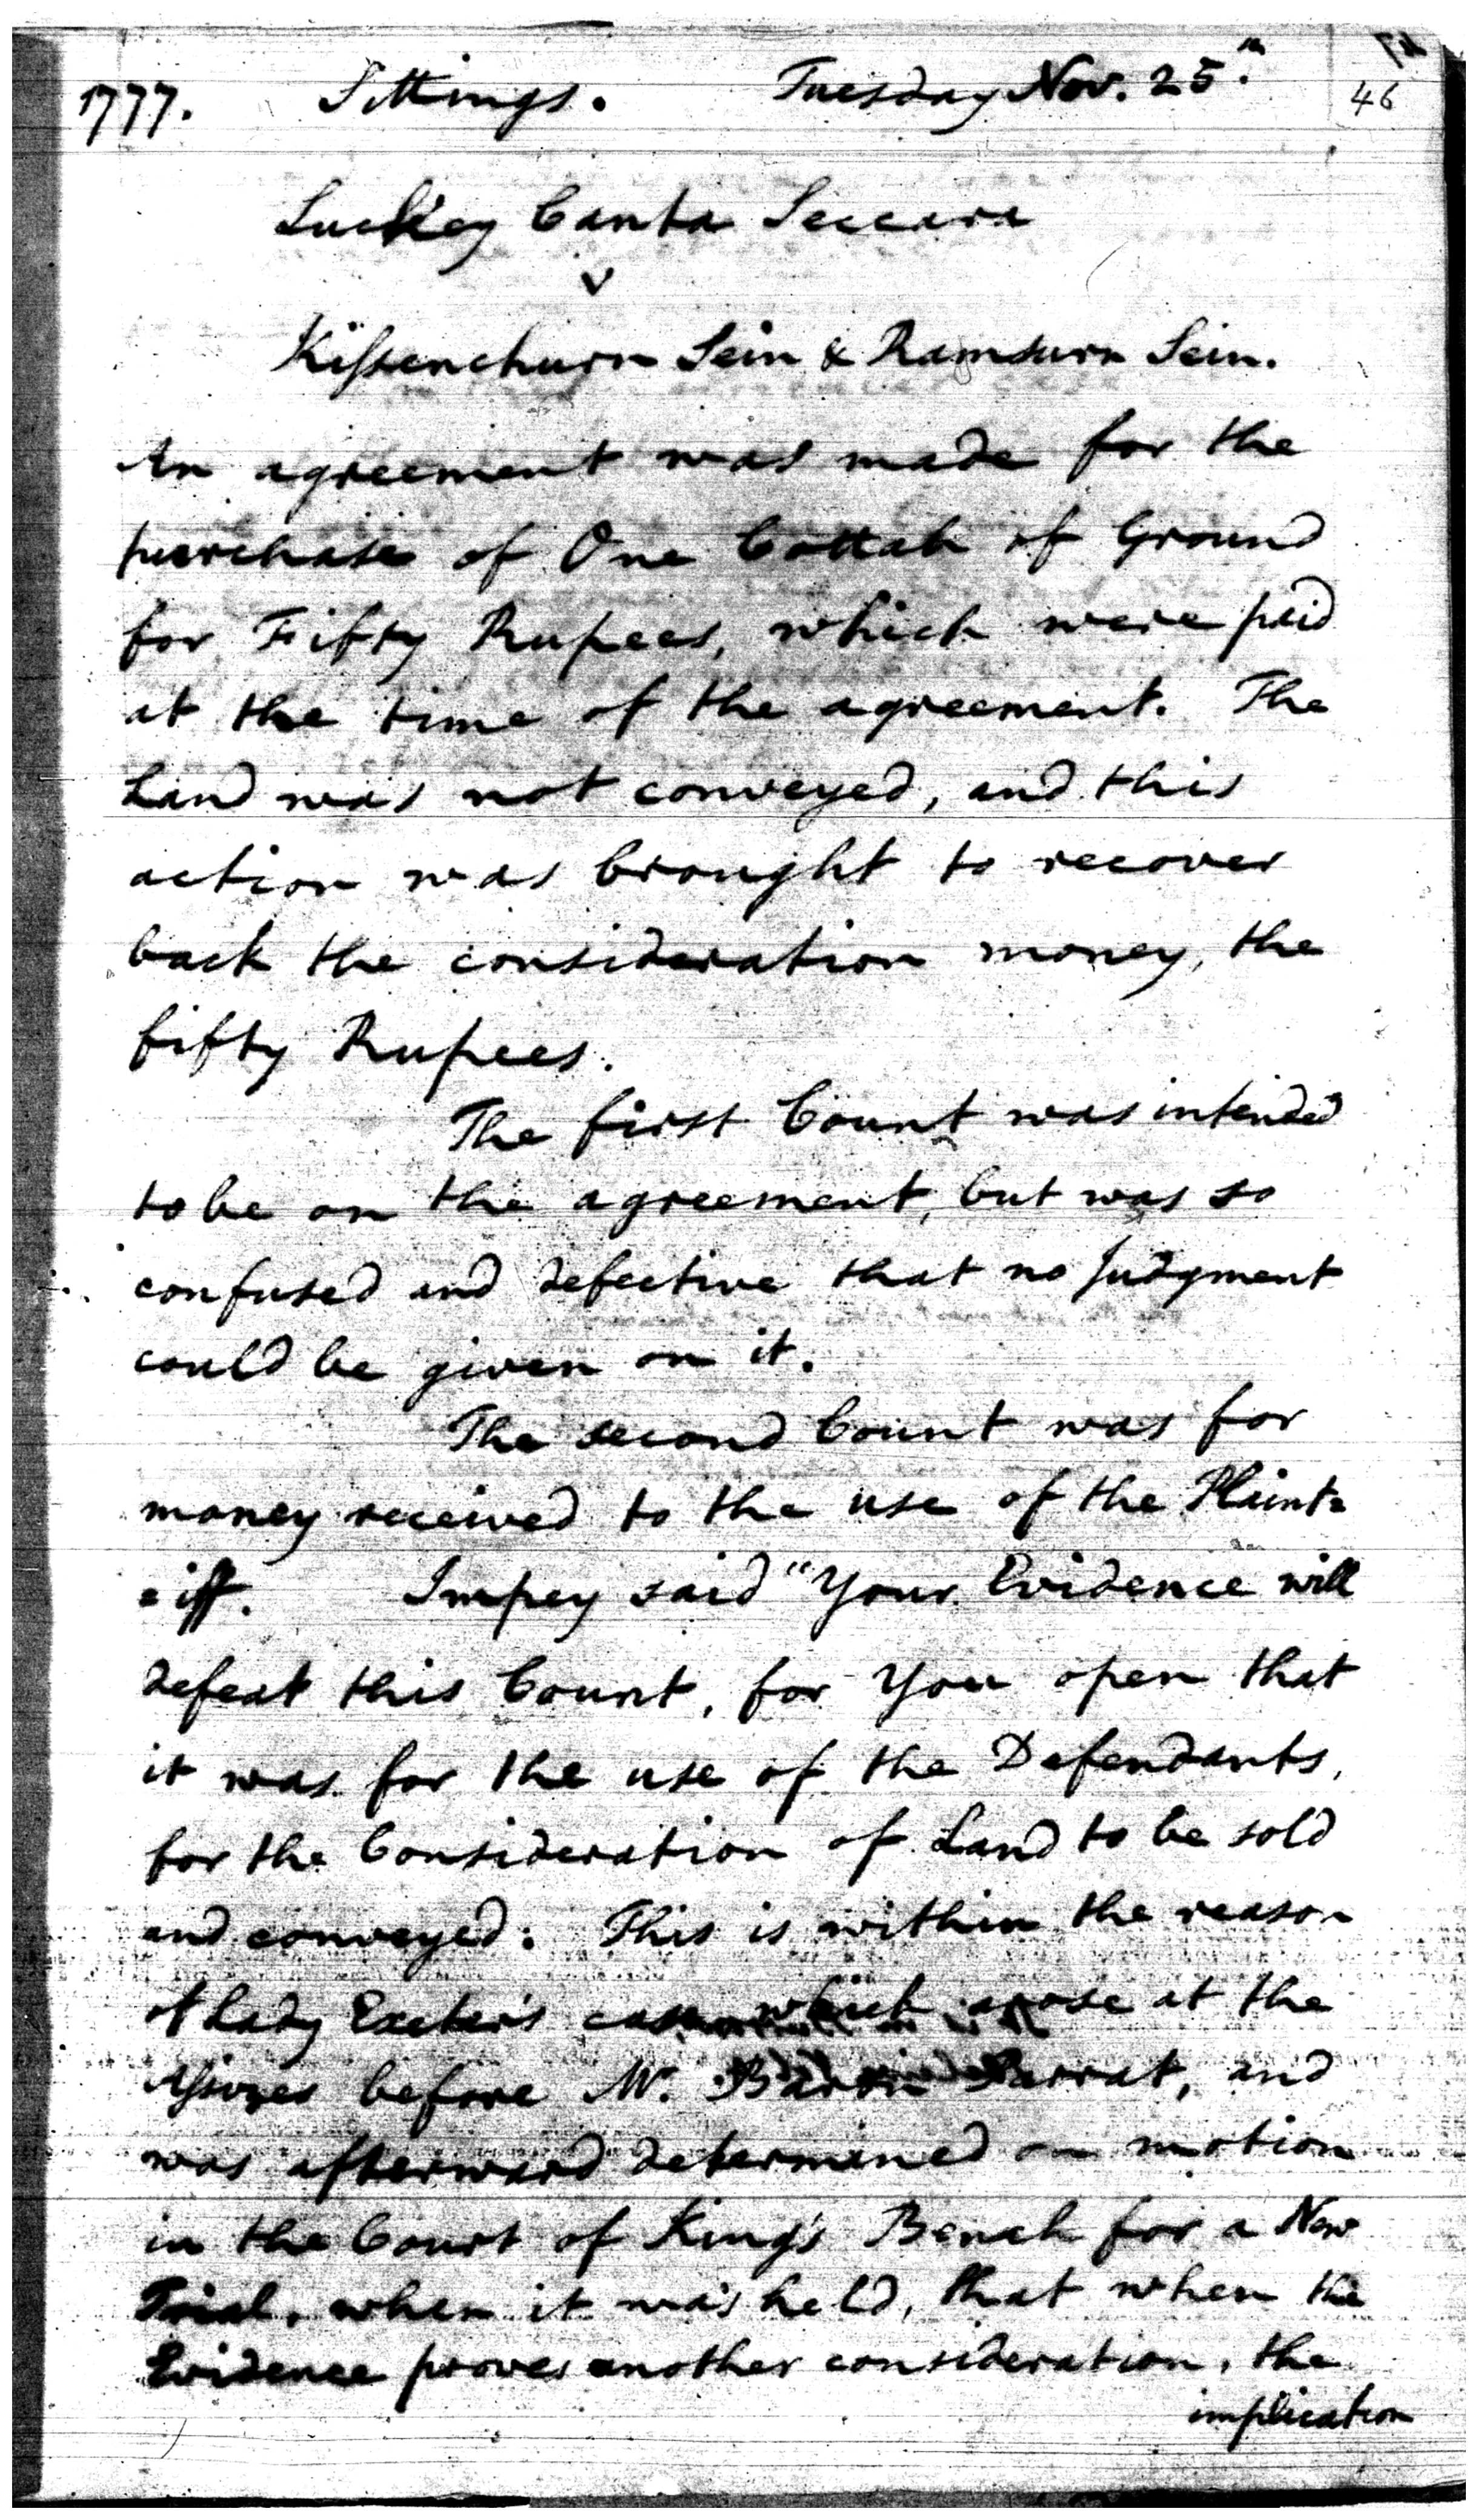 1777. Sittings. Tuesday Nov. 25.th
46
Luckey Canta Seccara
v
Kissenchurn Sein & Ramsurn Sein.
An agreement was made for the
purchase of One Cottah of Ground
for Fifty Rupees, which were paid
at the time of the agreement. The
Land was not conveyed, and this
action was brought to recover
back the consideration money, the
fifty Rupees.
The first Count was intended
to be on the agreement, but was so
confused and defective that no Judgment
could be given on it.
The second Count was for
money received to the use of the Plaint=
=iff. Impey said "Your Evidence will
defeat this Count, for You open that
it was for the use of the Defendants,
for the Consideration of Land to be sold
and conveyed: This is within the reason
of Lady Exeter's case which arose at the
Assizes before Mr. Baron Parrat, and
was afterward determined on motion
in the Court of King's Bench for a New
Trial, when it was held, that when the
Evidence proves another consideration, the
implication